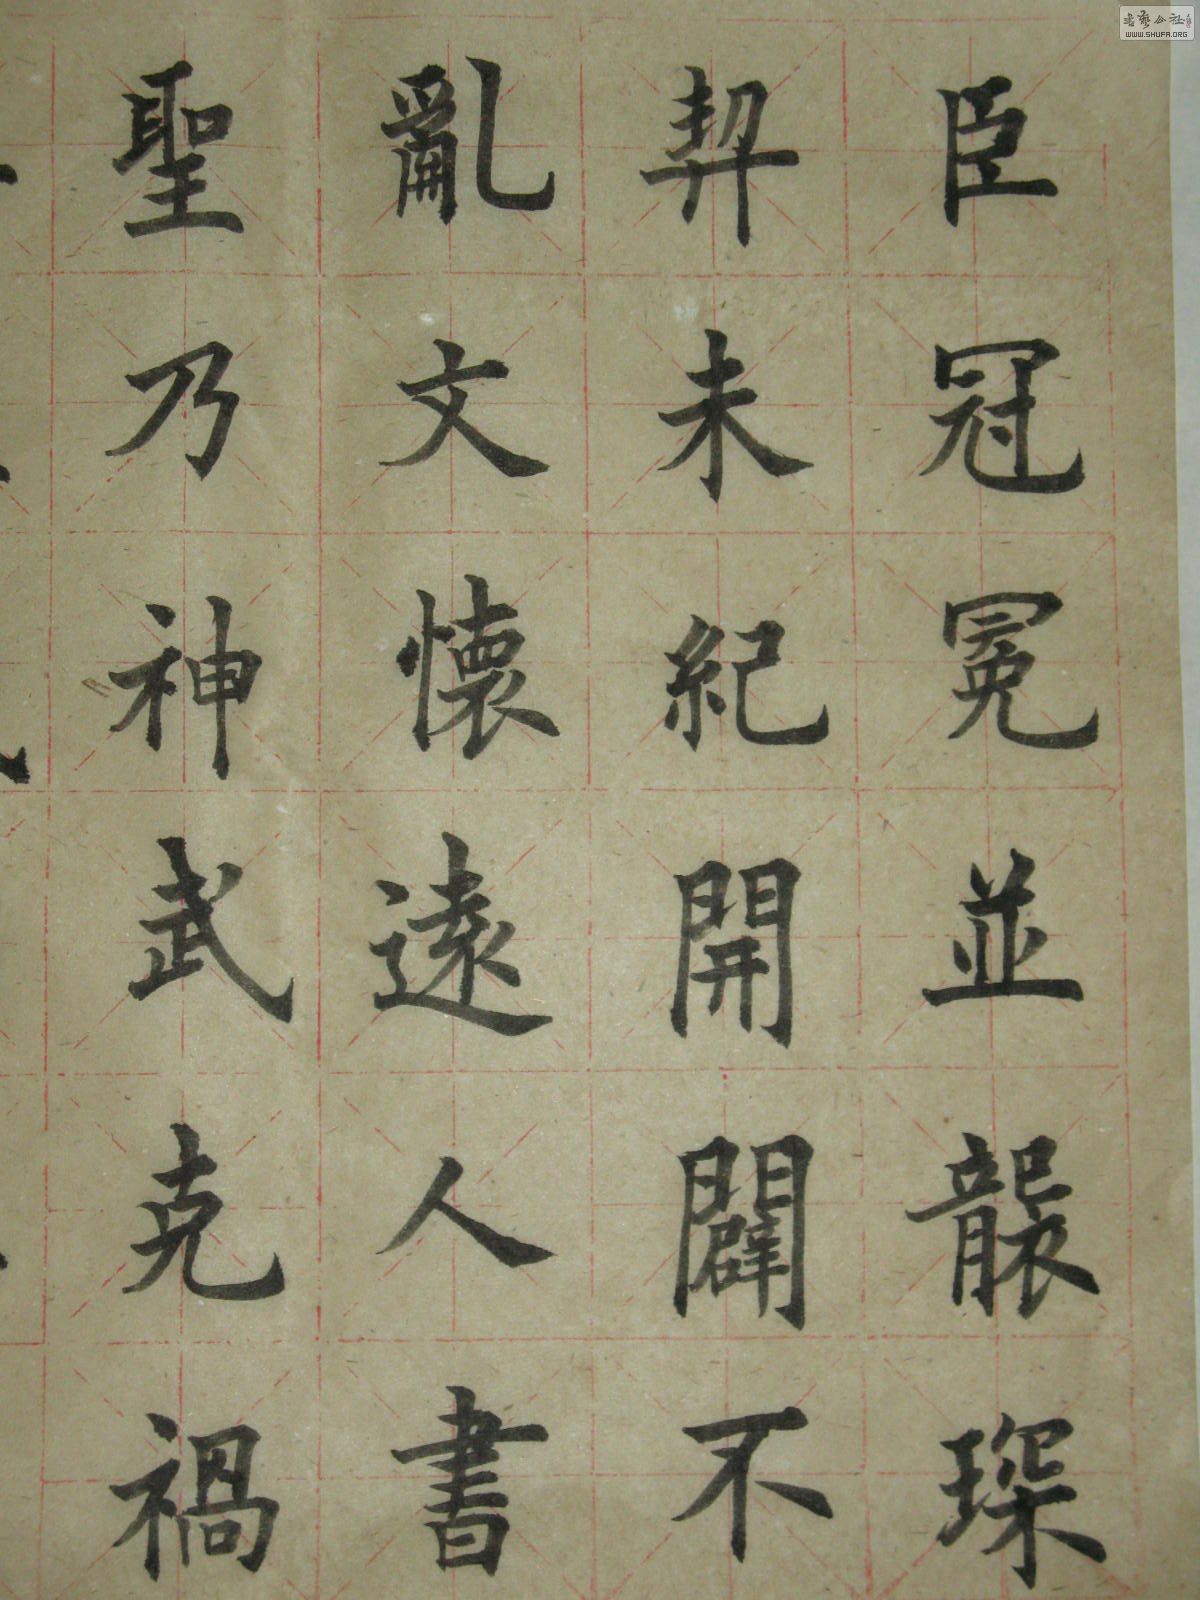 臣冠冕並襲琛
契未紀開闢不
亂文懷遠人書
聖乃神武克禍
書藝公社
WWW.SHUFA.ORG